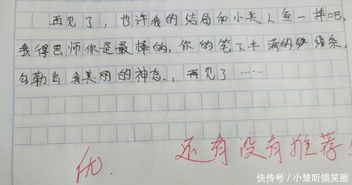 再见了，也许我的结局和小美人鱼一样吧，
我得巴师你是最棒的，你的笔下丰满的线条，
勾勒出我美丽的神态，再见了……
优.
还有没有推荐！
快传号/小楚昕搞笑圈